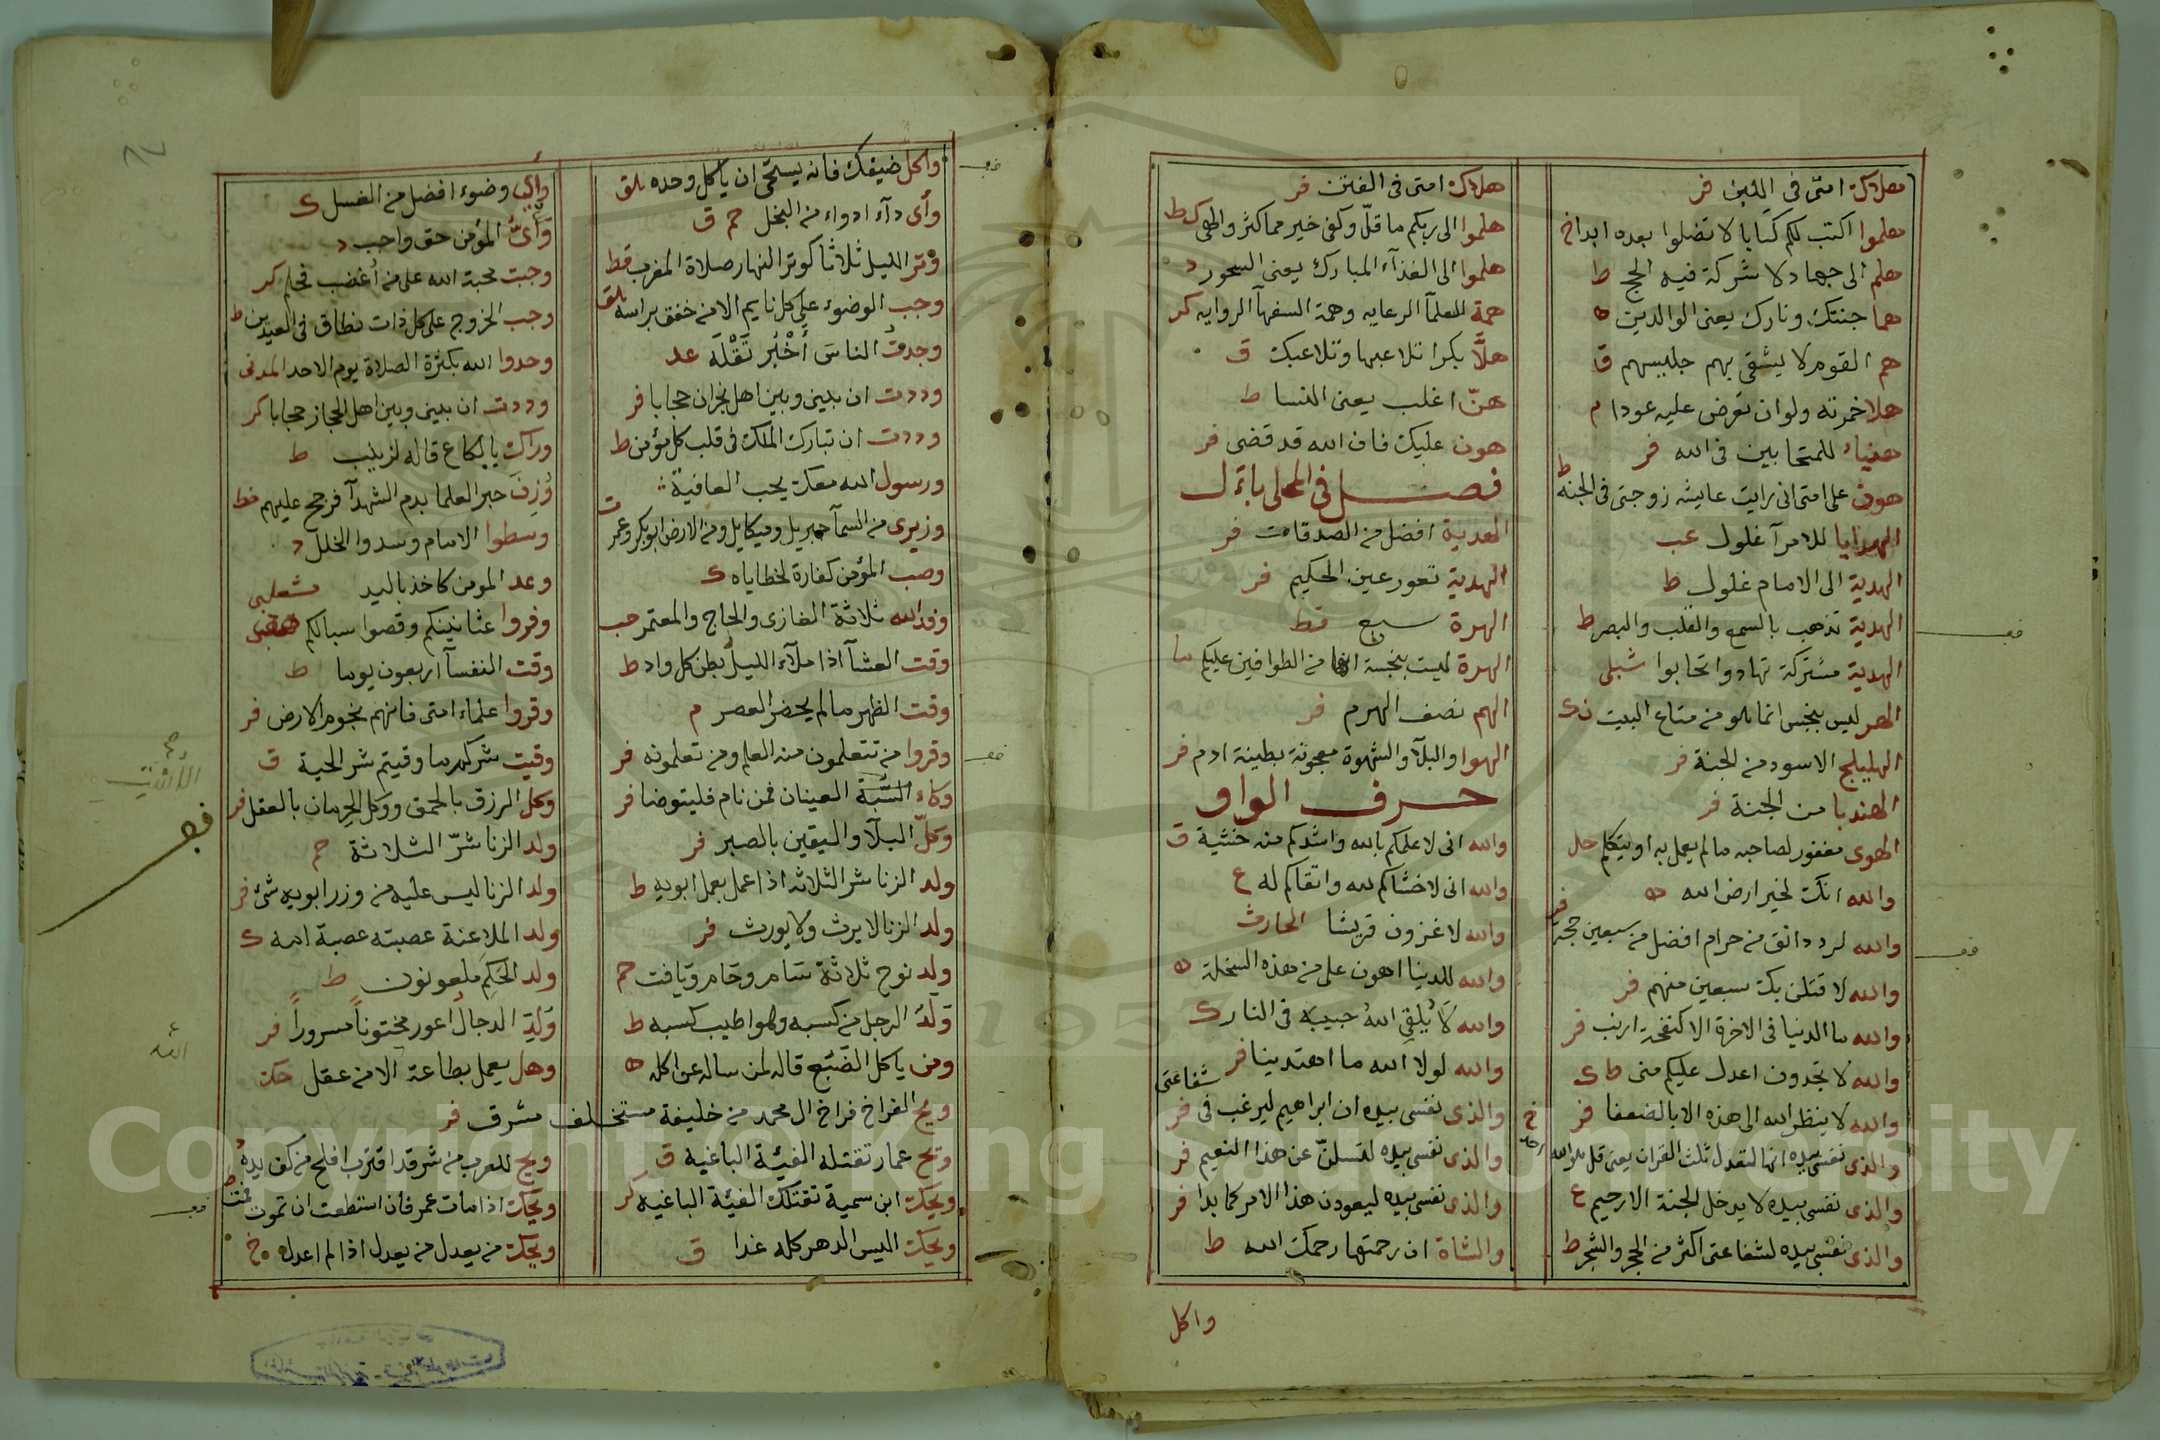 هلاك امتى فى اللبن فر
هلموا اكتب لكم كتابا لا تضلوا بعده ابدا خ
هلم الى جهاد لا شركة فيه الحج ط
هما جنتك ونارك يعنى الوالدين ه
هم القوم لا يشقى بهم جليسهم ق
هلا خمرته ولو ان تعرض عليه عودا م
هنيأ للمتحابين فى الله فر
هون على امتى انى رايت عايشه زوجتى فى الجنه ط
الهدايا للامرآ غلول عب
الهدية الى الامام غلول ط
الهدية تذهب بالسمع والقلب والبصر ط
الهدية مشتركة تهادوا تحابوا شبلى
الهر ليس بنجس انما هو من متاع البيت
الهليلج الاسود من الجنة فر
الهندبا من الجنة فر
الهوى مغفور لصاحبه ما لم يعمل به او يتكلم حل
والله انك لخير ارض الله ه
والله لرد دانق من حرام افضل من سبعين حجة فر
والله لا قتلن بك سبعين منهم فر
والله ما الدنيا فى الاخرة الا كنفخة ارنب فر
والله لا تجدون اعدل عليكم منى ط ك
والله لا ينظر الله الى هذه الا بالضعفا فر
والذى نفسى بيده انها لتعدل ثلث القران يعنى قل هو الله احد خ
والذى نفسى بيده لا يدخل الجنة الا رحيم ع
والذى نفسى بيده لشفاعتى اكثر من الحجر والشجر ط
هلاك امتى فى الفتن فر
هلموا الى ربكم ما قلّ وكفى خير مما كثر والهى ك ط
هلموا الى الغذآء المبارك يعنى السحور د
همة العلمآ الرعايه وهمة السفهآ الروايه كر
هلَّا بكرا تلاعبها وتلاعبك ق
هنّ اغلب يعنى النسا ط
هون عليك فان الله قد قضى فر
فصل فى المحلى بآل
الهدية افضل من الصدقات فر
الهدية تعور عين الحكيم فر
الهرة سبع قط
الهرة ليست بنجسة انها من الطوافين عليكم ما
الهم نصف الهرم فر
الهوا والبلآ والشهوة معجونة بطينة ادم فر
حرف الواو
والله انى لاعلمكم بالله واشدكم منه خشية ق
والله انى لاخشاكم لله واتقاكم له ع
والله لاغزون قريشا الحارث
والله للدنيا اهون على من هذه السخلة ه
والله لا يُلقِى اللهُ حبيبه فى النار ك
والله لولا الله ما اهتدينا فر
والذى نفسى بيده ان ابراهيم ليرغب فى شفاعتى فر
والذى نفسى بيده لتسئلنّ عن هذا النعيم فر
والذى نفسى بيده ليعودن هذا الامر كما بدا فر
والشاة ان رحمتها رحمك الله ط
واكل
واكل ضيفك فانه يستحى ان ياكل وحده
وأى دآء ادواء من البخل حم ق
وتر الليل ثلاثا كوتر النهار صلاة المغرب قط
وجب الوضوء على كل نايم الا من خفق براسه
وجدتُ الناسَ أُخْبُر تَقْلَه عد
وددت ان بينى وبين اهل نجران حجابا فر
وددت ان تبارك الملك فى قلب كل مؤمن ط
ورسول الله معك يحب العافية
وزيرى من السمآ جبريل وميكايل ومن الارض ابو بكر وعمر ت
وصب المؤمن كفارة لخطاياه ك
وفد الله ثلاثة الغازى والحاج والمعتمر حب
وقت العشآ اذا ملآء الليل بطن كل واد ط
وقت الظهر ما لم يحضر العصر م
وقروا من تتعلمون منه العلم ومن تعلمونه فر
وكآء السَّهِ العينان فمن نام فليتوضا فر
وكلّ البلآ واليقين بالصبر فر
ولد الزنا شر الثلاثه اذا عمل بعمل ابويه ط
ولد الزنا لا يرث ولا يورث فر
ولد نوح ثلاثة سَام وحَام ويَافث حم
وَلَدُ الرجل من كسبه وهو اطيب كسبه ط
ومن ياكل الضَبُع قاله لمن ساله عن اكله ه
ويح الفراخ فراخ ال محمد من خليفة مستخلف مشرف فر
ويح عمار تقتله الفئة الباغيه ق
ويحك ابن سمية تقتلك الفئة الباغيه كر
ويحك اليس الدهر كله غدا ق
واى وضوء افضل من الغسل ك
وَأىُ المؤمن حق واجب د
وجبت محبة الله على من أُغضب فحلم كر
وجب الخروج على كل ذات نطاق فى العيدين ط
وحدوا الله بكثرة الصلاة يوم الاحد المدنى
وددت ان بينى وبين اهل الحجاز حجابا كر
وراك يا لكاع قاله لزينب ط
وُزِنَ حبر العلما بدم الشهدآ فرجح عليهم خط
وسطوا الامام وسدوا الخلل د
وعد المومن كاخذ باليد
وفروا عثانينكم وقصوا سبالكم شعبى
وقت النفسآ اربعون يوما ط
وقروا علماء امتى فانهم نجوم الارض فر
وقيت شركم كما وقيتم شر الحية ق
وكل الرزق بالحمق ووكل الحرمان بالعقل فر
ولد الزنا شرّ الثلاثة حم
ولد الزنا ليس عليه من وزر ابويه شئ فر
ولد الملاعنة عصبته عصبة امه ك
ولد الحَكِم ملعونون ط
وُلِدَ الدجال اعور مختوناً مسروراً فر
وهل يعمل بطاعة الا من عقل حك
ويح للعرب من شر قد اقترب افلح من كف يدهُ
ويحك اذا مات عمر فان استطعت ان تموت فمت ط
ويحك من يعدل من يعدل اذا لم اعدل خ
الله
Copyright © King Saud University
1957